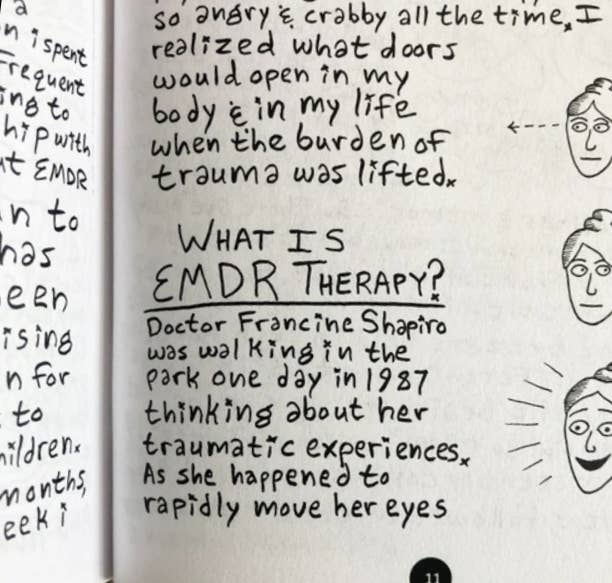 a
n i spent
Frequent
ing to
hip with
ut EMDR
n to
has
een
ising
n for
to
hildren.
months,
eek i
so angry & crabby all the time, I
realized what doors
would open in my
body & in my life
when the burden of
trauma was lifted.
WHAT IS
EMDR THERAPY?
Doctor Francine Shapiro
was walking in the
park one day in 1987
thinking about her
traumatic experiences.
As she happened to
rapidly move her eyes
11